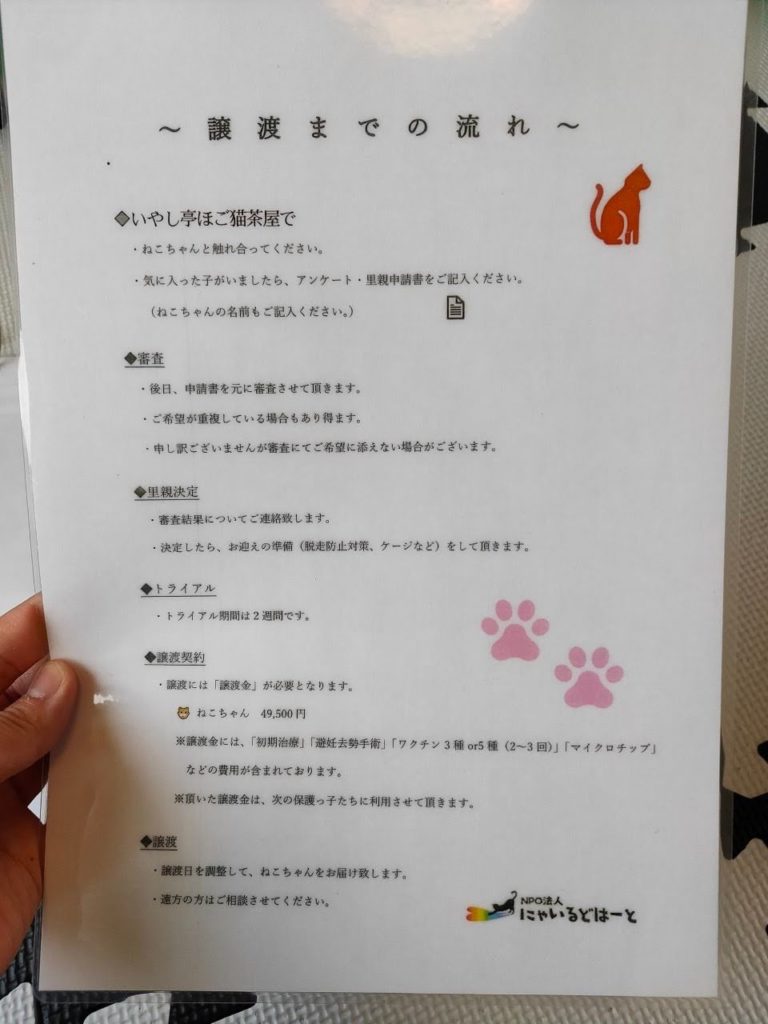 ～譲渡までの流れ～
◆いやし亭ほご猫茶屋で
・ねこちゃんと触れ合ってください。
・気に入った子がいましたら、アンケート・里親申請書をご記入ください。
（ねこちゃんの名前もご記入ください。）
◆審査
・後日、申請書を元に審査させて頂きます。
・ご希望が重複している場合もあり得ます。
・申し訳ございませんが審査にてご希望に添えない場合がございます。
◆里親決定
・審査結果についてご連絡致します。
・決定したら、お迎えの準備（脱走防止対策、ケージなど）をして頂きます。
◆トライアル
・トライアル期間は2週間です。
◆譲渡契約
・譲渡には「譲渡金」が必要となります。
ねこちゃん 49,500円
※譲渡金には、「初期治療」「避妊去勢手術」「ワクチン3種or5種（2～3回）」「マイクロチップ」
などの費用が含まれております。
※頂いた譲渡金は、次の保護っ子たちに利用させて頂きます。
◆譲渡
・譲渡日を調整して、ねこちゃんをお届け致します。
・遠方の方はご相談させてください。
NPO法人
にゃいるどはーと